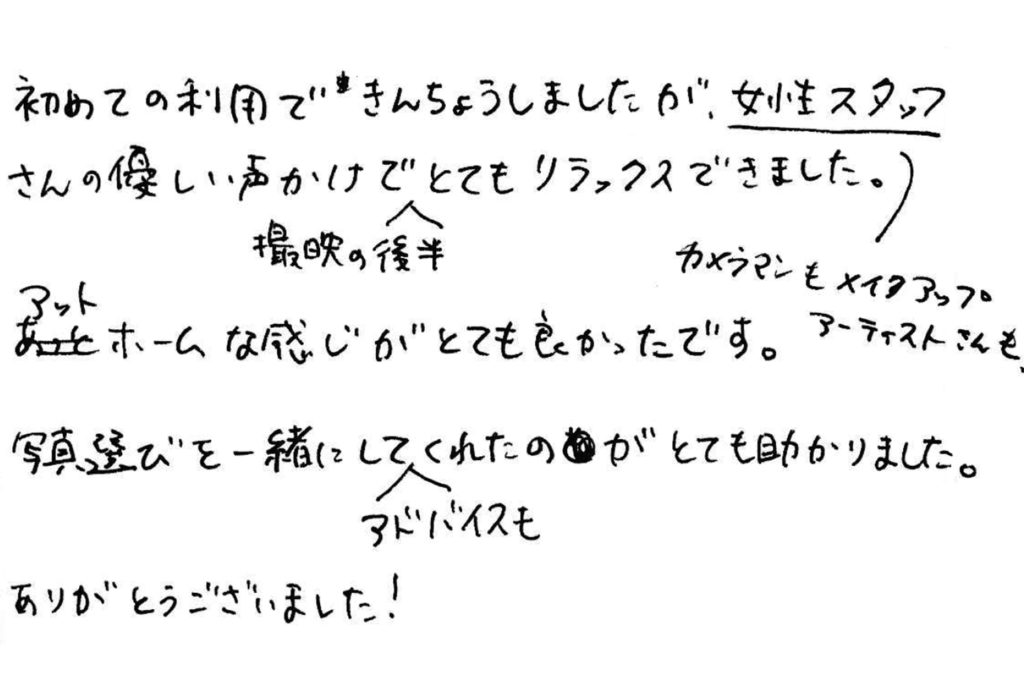 初めての利用できんちょうしましたが、女性スタッフ
さんの優しい声かけでとてもリラックスできました。
撮映の後半
カメラマンもメイクアップ
アーティストさんも、
アット
あっとホームな感じがとても良かったです。
写真選びを一緒にしてくれたのがとても助かりました。
アドバイスも
ありがとうございました!